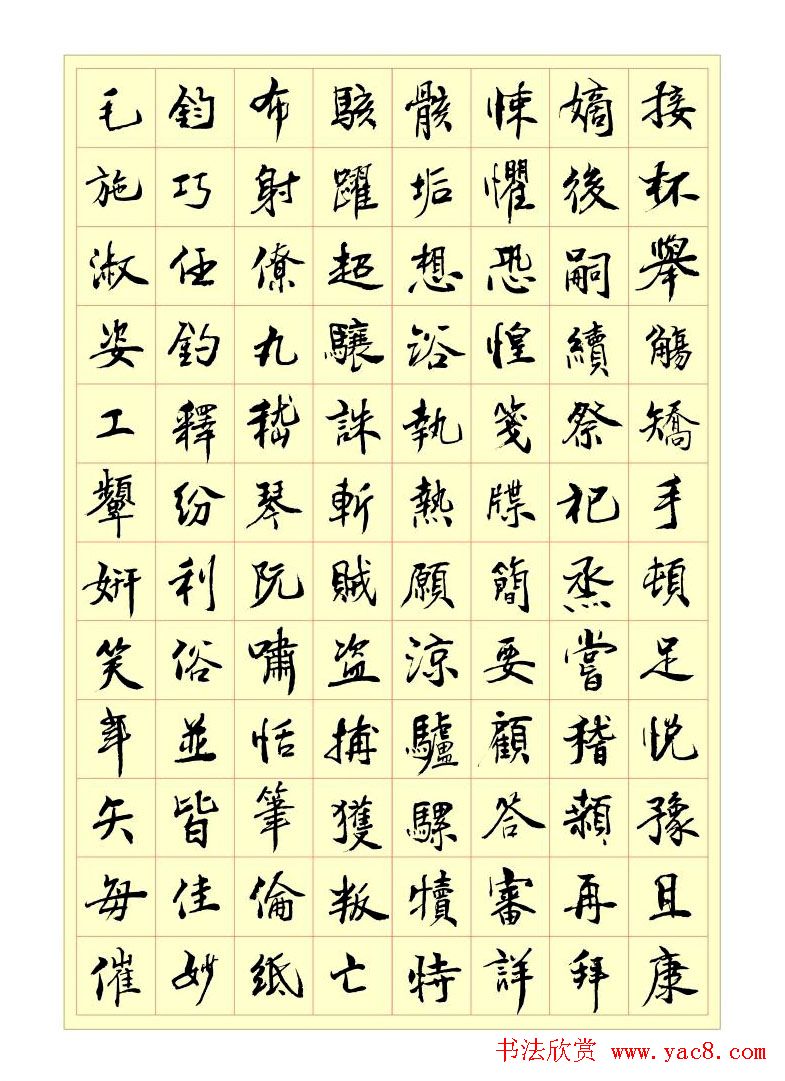 接杯舉觴矯手頓足悅豫且康
嫡後嗣續祭祀烝嘗稽顙再拜
悚懼恐惶箋牒簡要顧答審詳
骸垢想浴執熱願涼驢騾犢特
駭躍超驤誅斬賊盜捕獲叛亡
布射僚丸嵇琴阮嘯恬筆倫紙
鈞巧任釣釋紛利俗並皆佳妙
毛施淑姿工顰妍笑年矢每催
书法欣赏 www.yac8.com